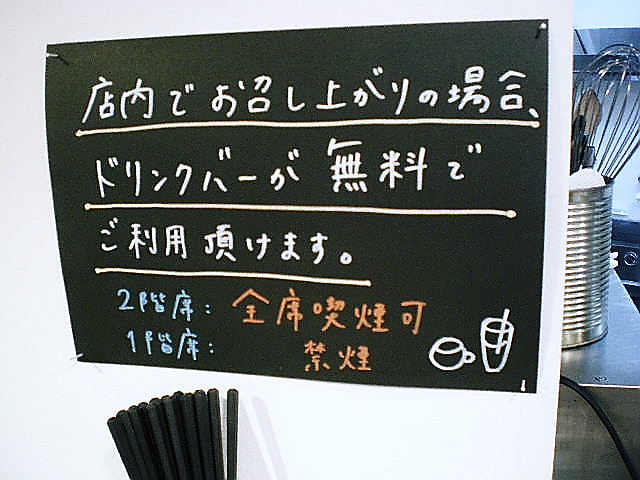 店内でお召し上がりの場合、
ドリンクバーが無料で
ご利用頂けます。
2階席: 全席喫煙可
1階席: 禁煙